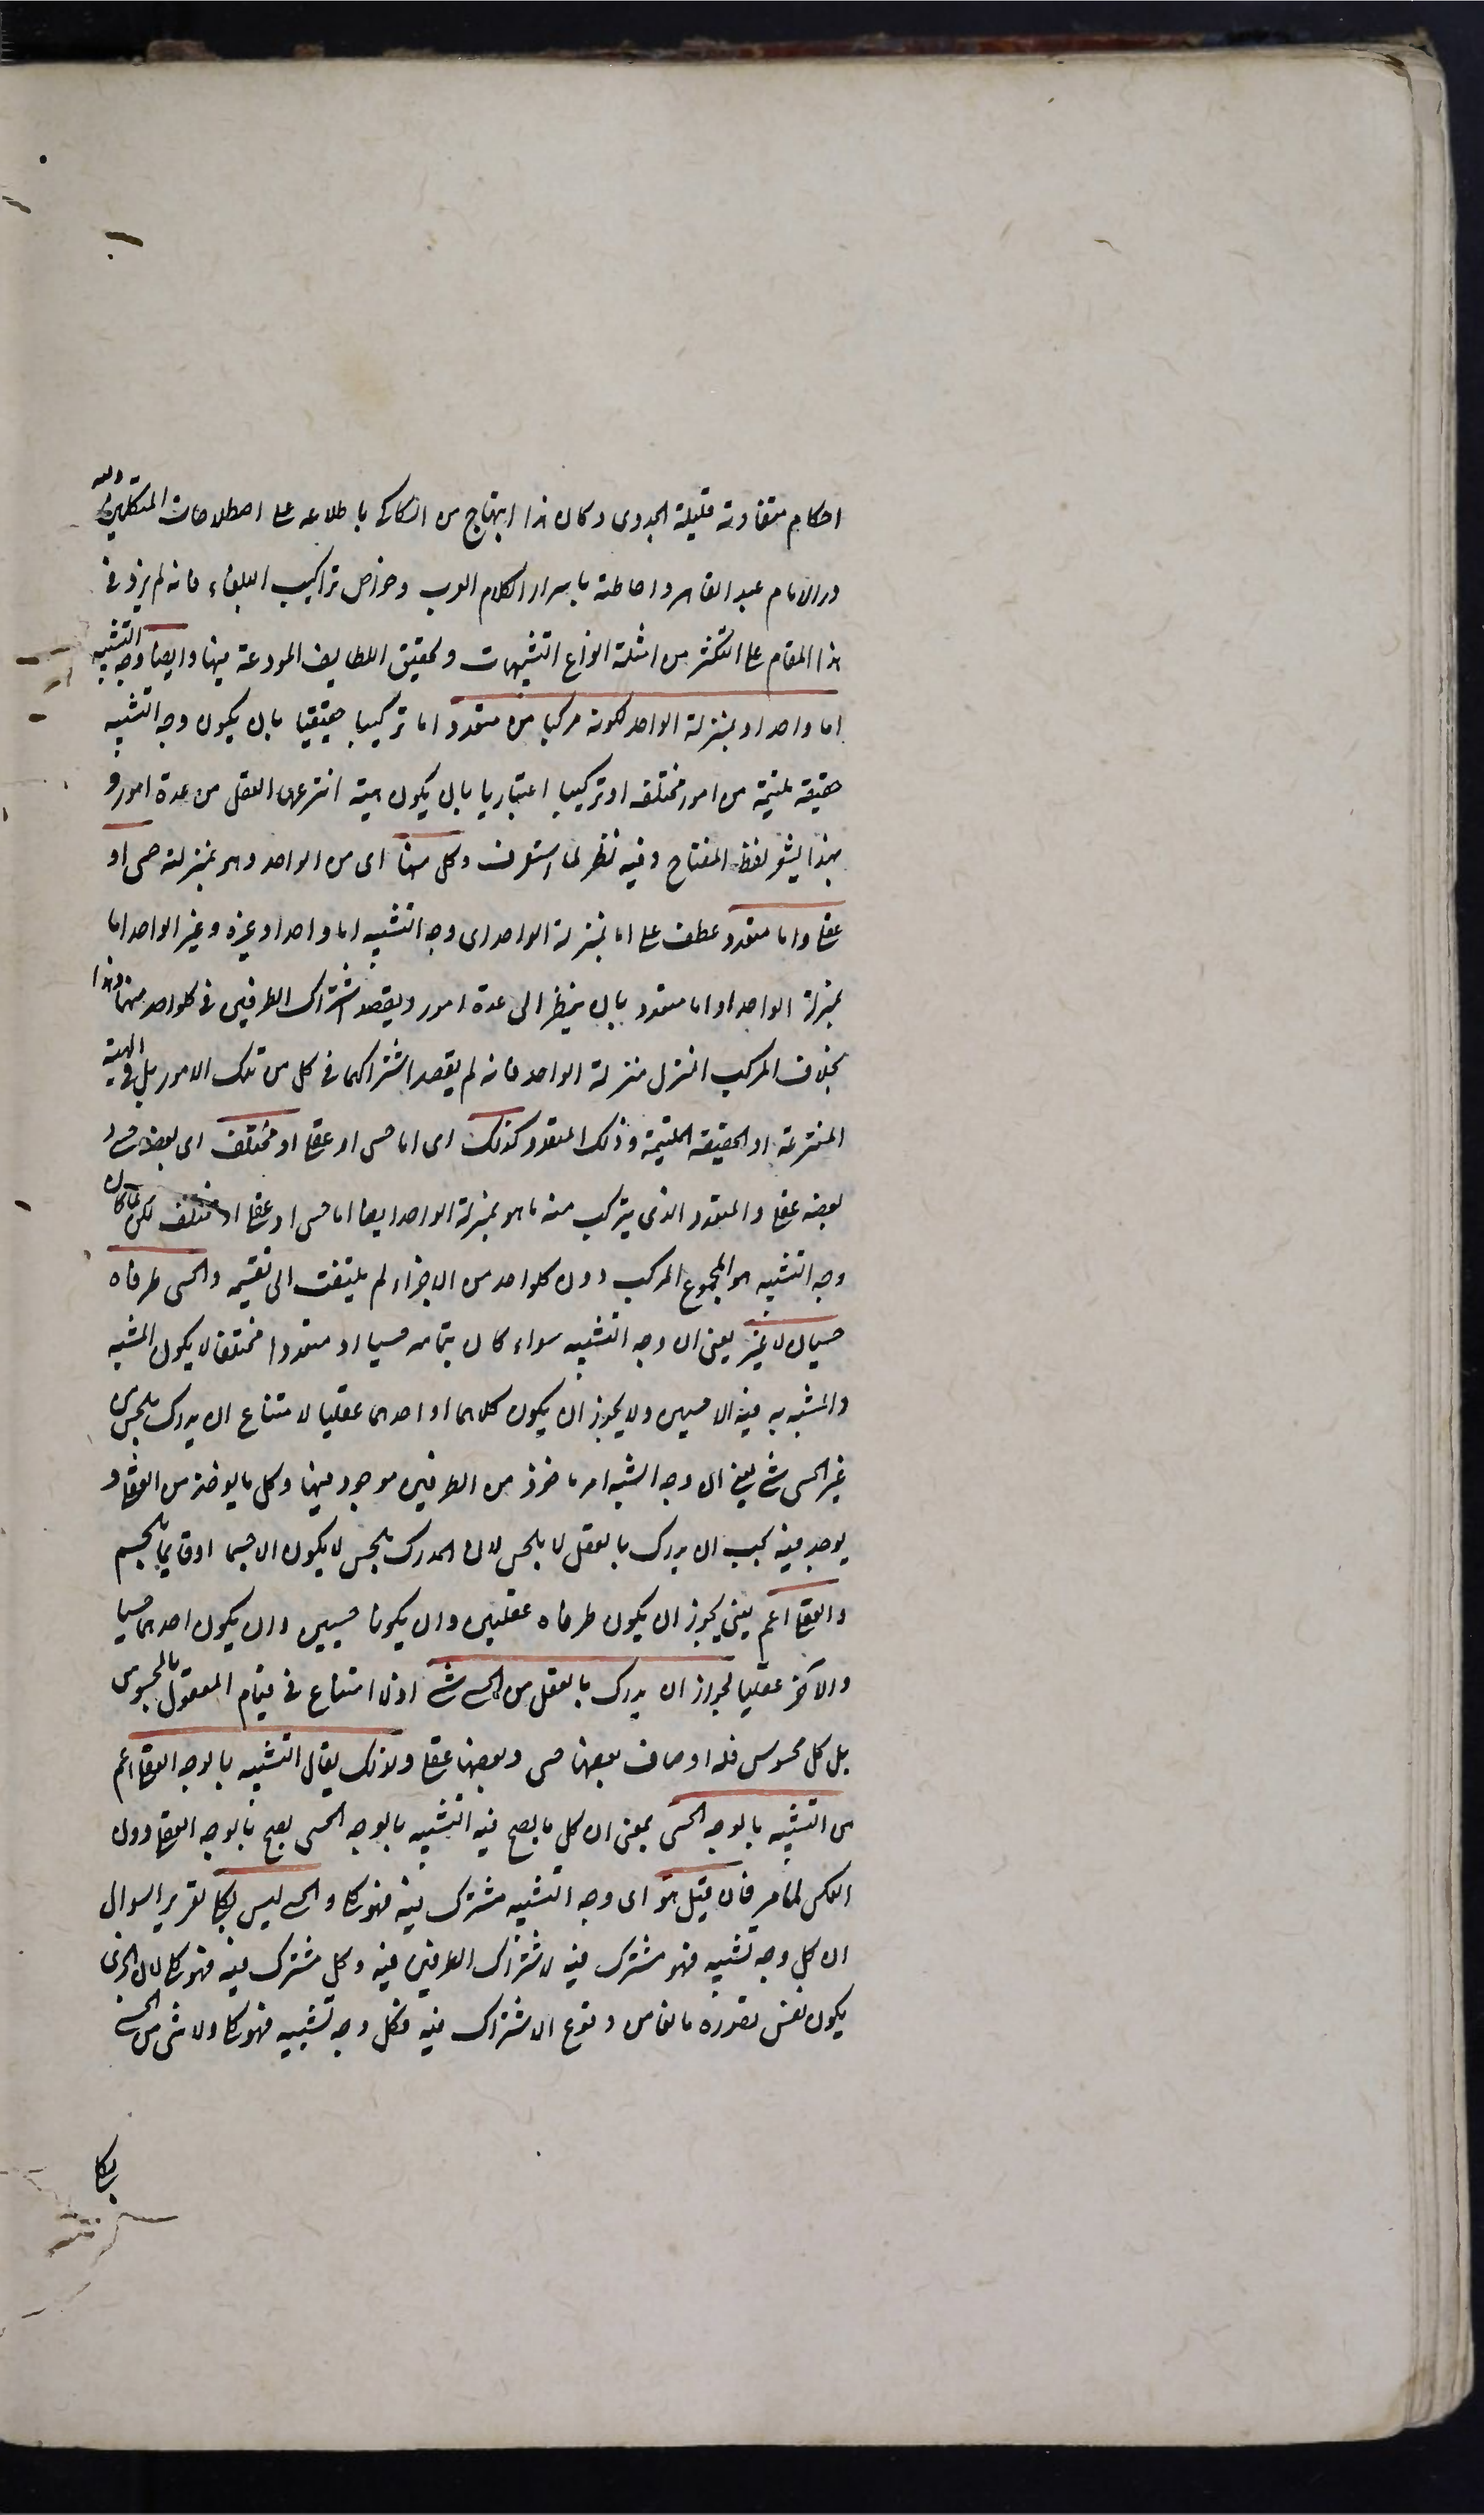 احكام متفاوتة قليلة الجدوى وكان هذا ابتهاج من السكاكى باطلاعه على اصطلاحات المتكلمين ولله
در الامام عبد القاهر واحاطته باسرار الكلام العرب وخواص تراكيب البلغاء فانه لم يزد فى
هذا المقام على التكثر من امثلة انواع التشبيهات وتحقيق اللطايف المودعة فيها وايضا وجه التشبيه
اما واحد او بمنزلة الواحد لكونه مركبا من متعدد اما تركيبا حقيقيا بان يكون وجه التشبيه
حقيقة ملتئمة من امور مختلفه او تركيبا اعتباريا بان يكون هيئة انتزعها العقل من عدة امور و
بهذا يشعر لفظ المفتاح وفيه نظر لما ستعرف وكل منها اى من الواحد وهو بمنزلته حسى او
عقلى واما متعدد عطف على اما بمنزلة الواحد اى وجه التشبيه اما واحد او غيره وغير الواحد اما
بمنزلة الواحد او اما متعدد بان ينظر الى عدة امور ويقصد اشتراك الطرفين فى كلواحد منها وهذا
بخلاف المركب المنزل منزلة الواحد فانه لم يقصد اشتراكهما فى كل من تلك الامور بل فى الهيئة
المنتزعة او الحقيقة الملتئمة وذلك المتعدد كذلك اى اما حسى او عقلى او مختلف اى بعضه حسى و
بعضه عقلى والمتعدد الذى يتركب منه ما هو بمنزلة الواحد ايضا اما حسى او عقلى او مختلف لكن لما كان
وجه التشبيه هو المجموع المركب دون كلواحد من الاجزاء لم يلتفت الى تقسيمه والحسى طرفاه
حسيان لا غير يعنى ان وجه التشبيه سواء كان بتمامه حسيا او متعددا مختلفا لا يكون المشبه
والمشبه به فيه الا حسيين ولا يجوز ان يكون كلاهما او احدهما عقليا لامتناع ان يدرك بالحس من
غير الحسى شئ يعنى ان وجه الشبه امر ماخوذ من الطرفين موجود فيهما وكل ما يوخذ من العقلى و
يوجد فيه يجب ان يدرك بالعقل لا بالحس لان المدرك بالحس لا يكون الا جسما او قايما بالجسم
والعقلى اعم يعنى يجوز ان يكون طرفاه عقليين وان يكونا حسيين وان يكون احدهما حسيا
والآخر عقليا لجواز ان يدرك بالعقل من الحسى شئ اذ لا امتناع فى قيام المعقول بالمحسوس
بل كل محسوس فله اوصاف بعضها حسى وبعضها عقلى ولذلك يقال التشبيه بالوجه العقلى اعم
من التشبيه بالوجه الحسى بمعنى ان كل ما يصح فيه التشبيه بالوجه الحسى يصح بالوجه العقلى دون
العكس لما مر فان قيل هو اى وجه التشبيه مشترك فيه فهو كلى والحسى ليس بكلى تقرير السوال
ان كل وجه تشبيه فهو مشترك فيه لاشتراك الطرفين فيه وكل مشترك فيه فهو كلى لان الجزئى
يكون نفس تصوره مانعا من وقوع الاشتراك فيه فكل وجه تشبيه فهو كلى ولا شئ من الحسى
بكلى